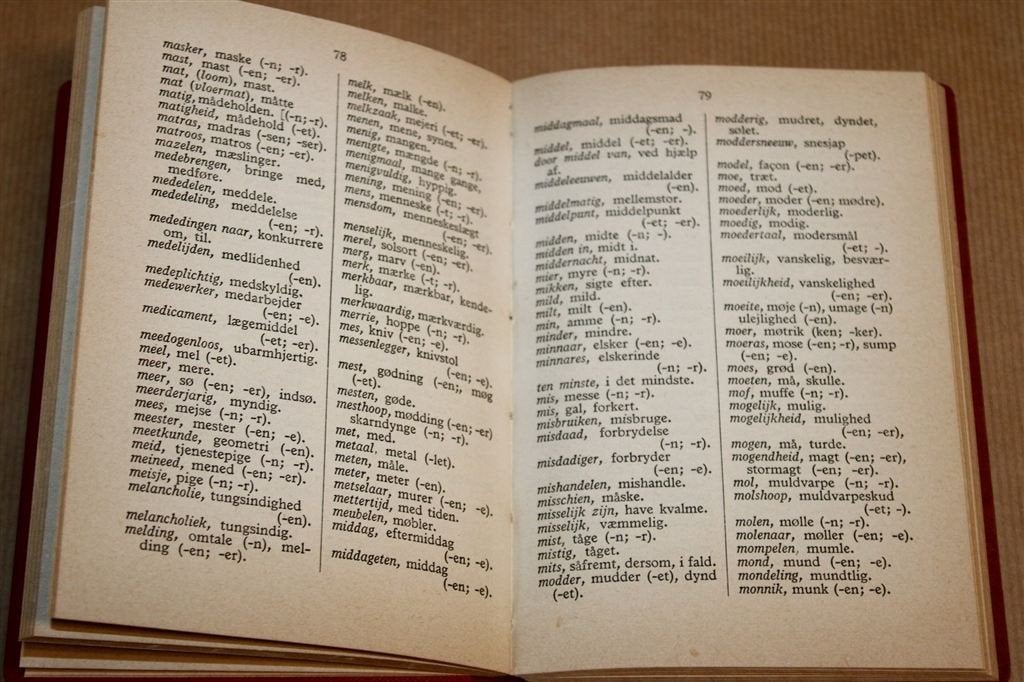 78
masker, maske (-n; -r).
mast, mast (-en; -er).
mat, (loom), mast.
mat (vloermat), måtte
matig, mådeholden. [(-n; -r).
matigheid, mådehold (-et).
matras, madras (-sen; -ser).
matroos, matros (-en; -er).
mazelen, mæslinger.
medebrengen, bringe med,
medføre.
mededelen, meddele.
mededeling, meddelelse
(-en; -r).
mededingen naar, konkurrere
om, til.
medelijden, medlidenhed
(-en).
medeplichtig, medskyldig.
medewerker, medarbejder
(-en; -e).
medicament, lægemiddel
(-et; -er).
meedogenloos, ubarmhjertig.
meel, mel (-et).
meer, mere.
meer, sø (-en; -er), indsø.
meerderjarig, myndig.
mees, mejse (-n; -r).
meester, mester (-en; -e).
meetkunde, geometri (-en).
meid, tjenestepige (-n; -r).
meineed, mened (-en; -er).
meisje, pige (-n; -r).
melancholie, tungsindighed
(-en).
melancholiek, tungsindig.
melding, omtale (-n), mel-
ding (-en; -er).
melk, mælk (-en).
melken, malke.
melkzaak, mejeri (-et; -er).
menen, mene, synes.
menig, mangen.
menigte, mængde (-n; -r).
menigmaal, mange gange,
menigvuldig, hyppig.
mening, mening (-en; -er).
mens, menneske (-t; -r).
mensdom, menneskeslægt
(-en; -er).
menselijk, menneskelig.
merel, solsort (-en; -er).
merg, marv (-en).
merk, mærke (-t; -r).
merkbaar, mærkbar, kende-
lig.
merkwaardig, mærkværdig.
merrie, hoppe (-n; -r).
mes, kniv (-en; -e).
messenlegger, knivstol
(-en; -e).
mest, gødning (-en;, møg
(-et).
mesten, gøde.
mesthoop, mødding (-en; -er)
skarndynge (-n; -r).
met, med.
metaal, metal (-let).
meten, måle.
meter, meter (-en).
metselaar, murer (-en; -e).
mettertijd, med tiden.
meubelen, møbler.
middag, eftermiddag
(-en; -e).
middageten, middag
(-en; -e).
79
middagmaal, middagsmad
(-en; -).
middel, middel (-et; -er).
door middel van, ved hjælp
af.
middeleeuwen, middelalder
(-en).
middelmatig, mellemstor.
middelpunt, middelpunkt
(-et; -er).
midden, midte (-n; -).
midden in, midt i.
middernacht, midnat.
mier, myre (-n; -r).
mikken, sigte efter.
mild, mild.
milt, milt (-en).
min, amme (-n; -r).
minder, mindre.
minnaar, elsker (-en; -e).
minnares, elskerinde
(-n; -r).
ten minste, i det mindste.
mis, messe (-n; -r).
mis, gal, forkert.
misbruiken, misbruge.
misdaad, forbrydelse
(-n; -r).
misdadiger, forbryder
(-en; -e).
mishandelen, mishandle.
misschien, måske.
misselijk zijn, have kvalme.
misselijk, væmmelig.
mist, tåge (-n; -r).
mistig, tåget.
mits, såfremt, dersom, i fald.
modder, mudder (-et), dynd
(-et).
modderig, mudret, dyndet,
sølet.
moddersneeuw, snesjap
(-pet).
model, façon (-en; -er).
moe, træt.
moed, mod (-et).
moeder, moder (-en; mødre).
moederlijk, moderlig.
moedig, modig.
moedertaal, modersmål
(-et; -).
moeilijk, vanskelig, besvær-
lig.
moeilijkheid, vanskelighed
(-en; -er).
moeite, møje (-n), umage (-n)
ulejlighed (-en).
moer, møtrik (ken; -ker).
moeras, mose (-en; -r), sump
(-en; -e).
moes, grød (-en).
moeten, må, skulle.
mof, muffe (-n; -r).
mogelijk, mulig.
mogelijkheid, mulighed
(-en; -er),
mogen, må, turde.
mogendheid, magt (-en; -er),
stormagt (-en; -er).
mol, muldvarpe (-n; -r).
molshoop, muldvarpeskud
(-et; -).
molen, mølle (-n; -r).
molenaar, møller (-en; -e).
mompelen, mumle.
mond, mund (-en; -e).
mondeling, mundtlig.
monnik, munk (-en; -e).